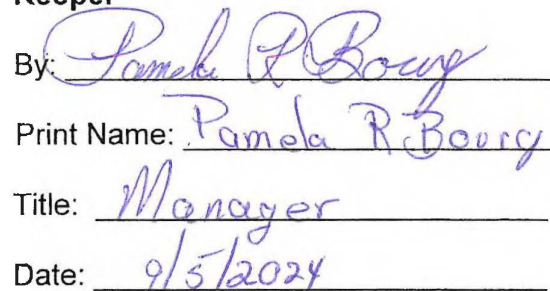 Keeper
By: Pamela R Bourg
Print Name: Pamela R Bourg
Title: Manager
Date: 9/5/2024